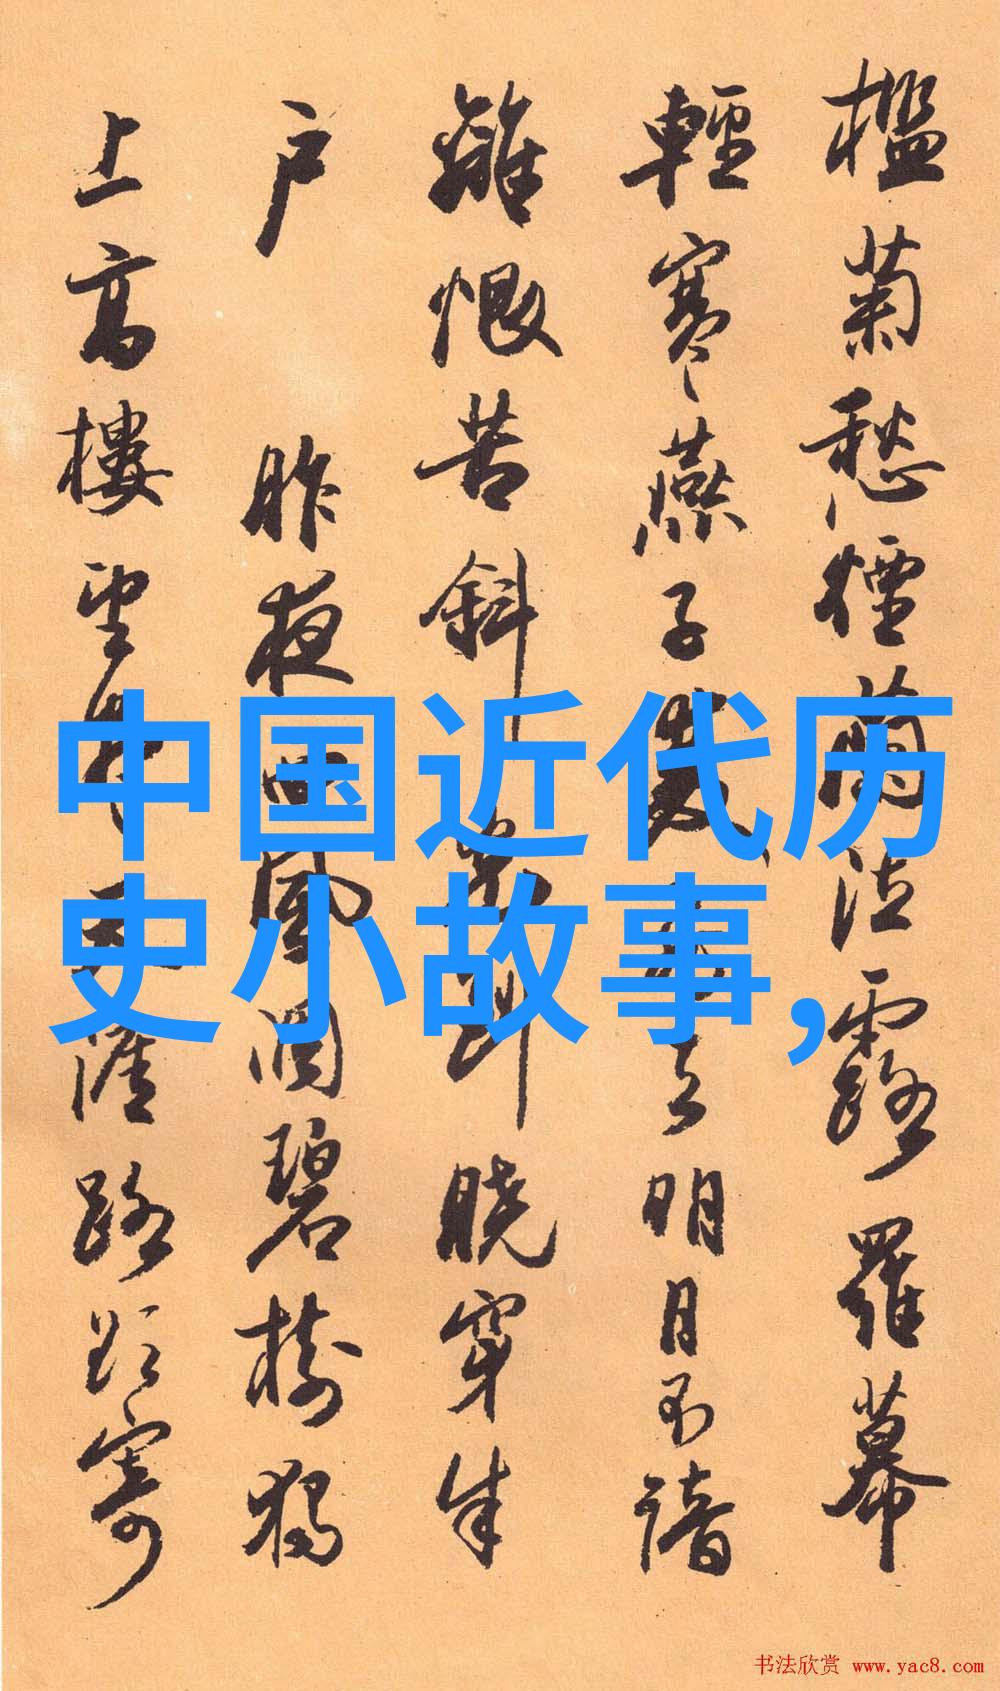 檻菊愁煙蘭泣露羅幕
輕寒燕子雙飛去明月不諳
離恨苦斜光到曉穿朱
户 昨夜西風凋碧樹獨
上高樓望盡天涯路欲寄
中国近代历
史小故事,
书法欣赏 www.yac8.com